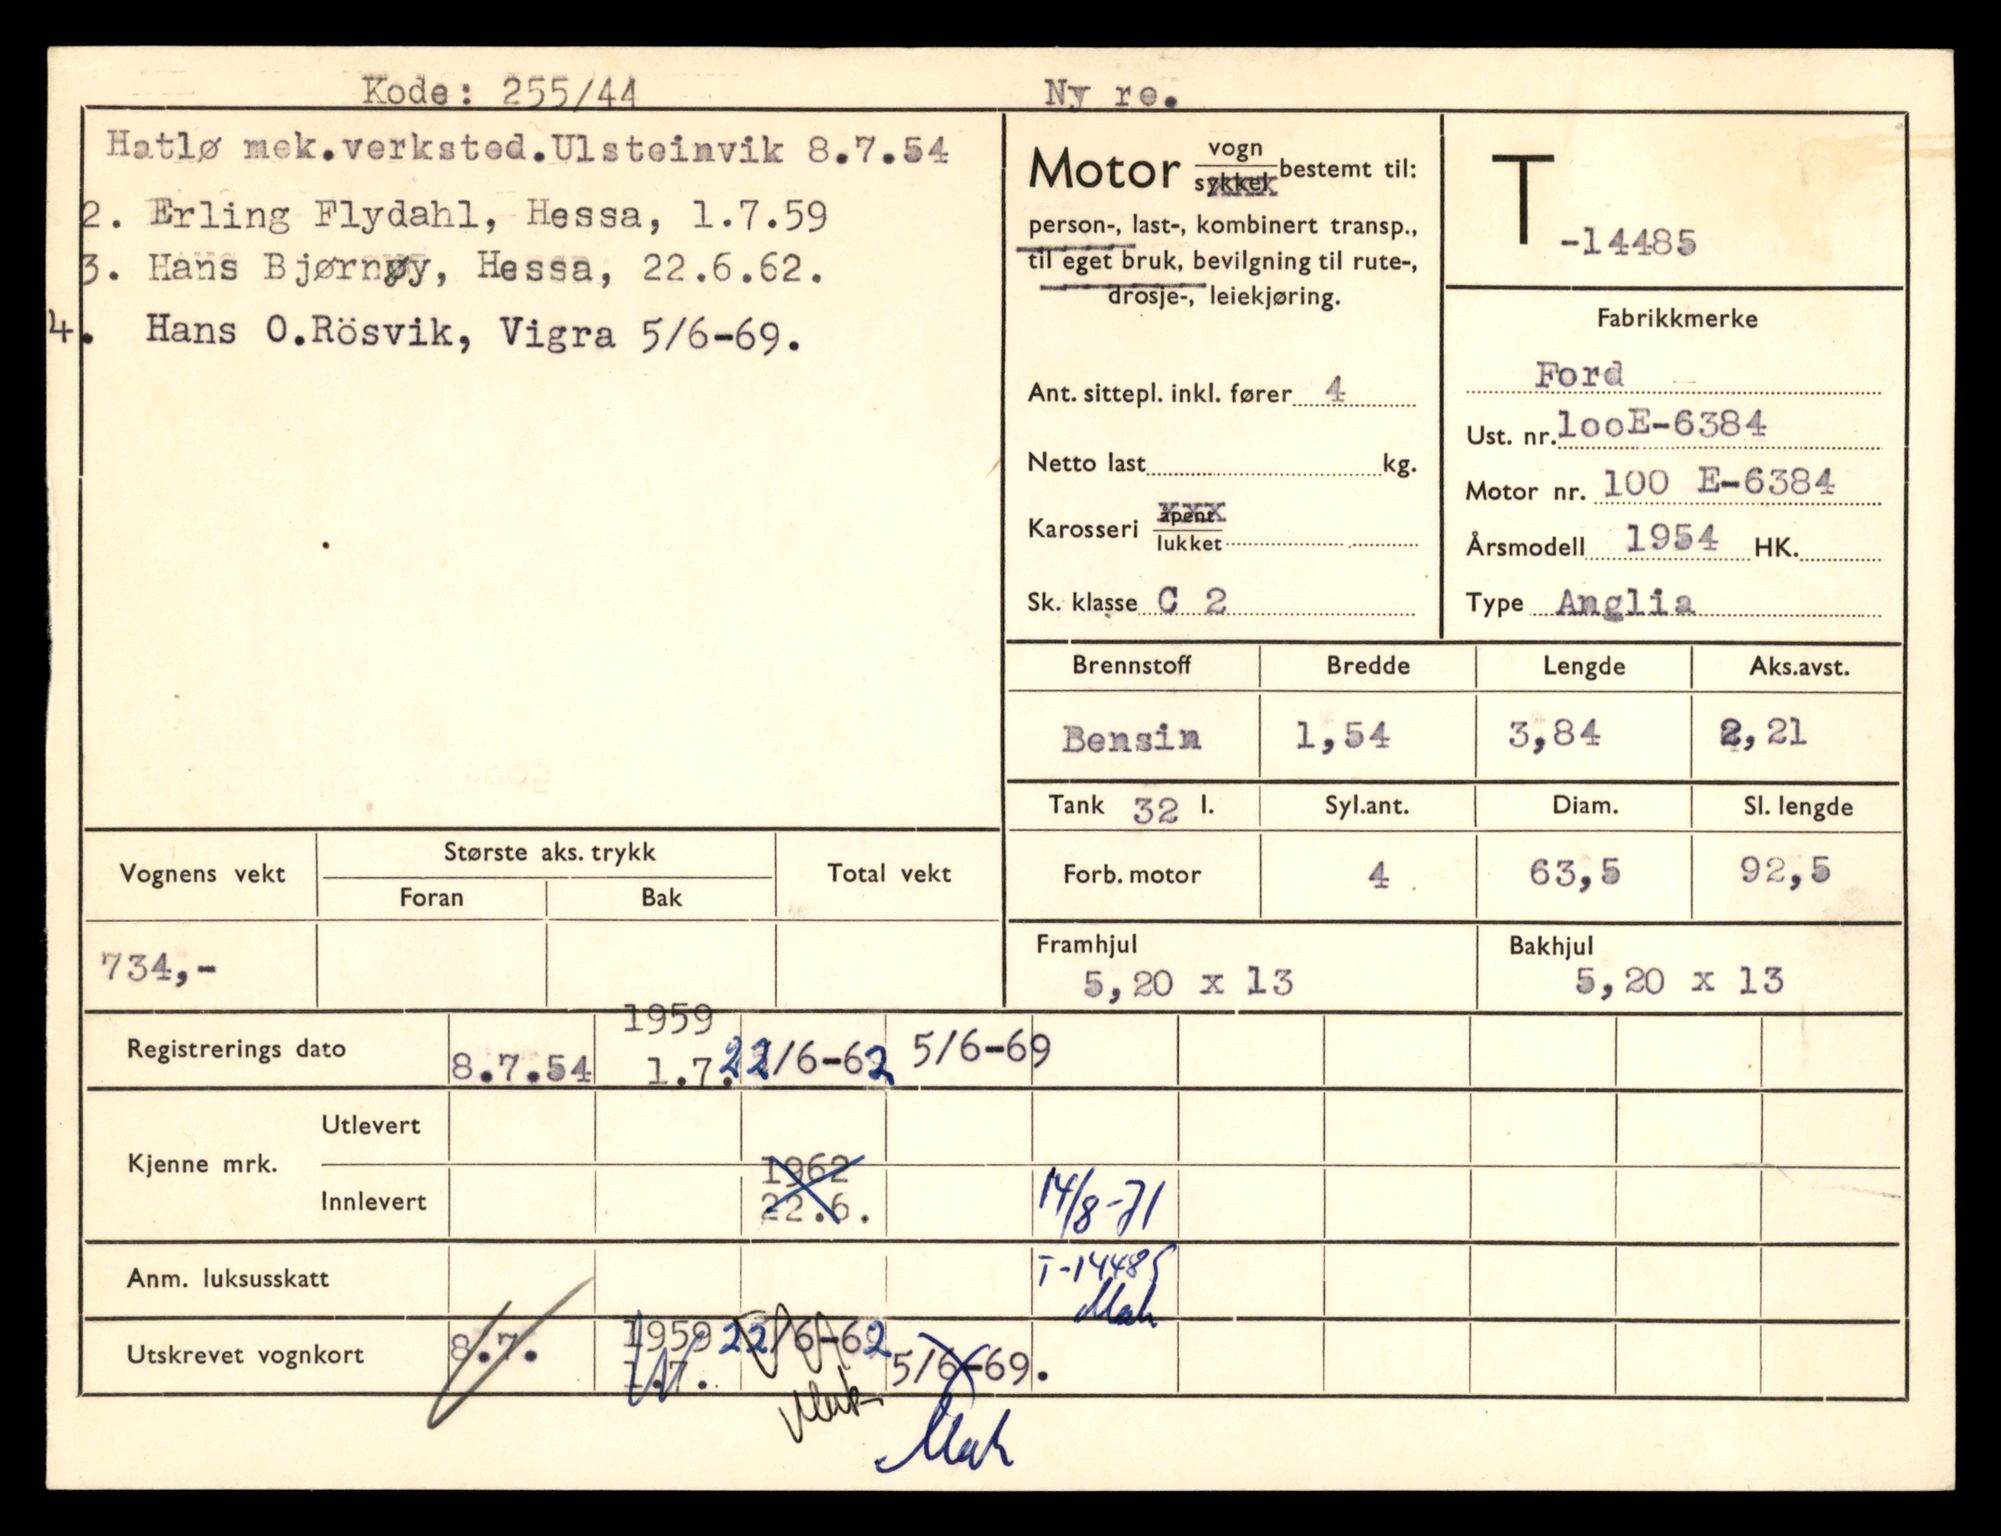 Kode: 255/44
Ny re.
Hatlø mek.verksted.Ulsteinvik 8.7.54
2. Erling Flydahl, Hessa, 1.7.59
3. Hans Bjørnøy, Hessa, 22.6.62.
4. Hans O.Rösvik, Vigra 5/6-69.
Motor vogn
sykkel bestemt til:
person-, last-, kombinert transp.,
til eget bruk, bevilgning til rute-,
drosje-, leiekjøring.
Ant. sittepl. inkl. fører 4
Netto last kg.
Karosseri åpent
lukket
Sk. klasse C 2
T -14485
Fabrikkmerke
Ford
Ust. nr. looE-6384
Motor nr. 100 E-6384
Årsmodell 1954 HK.
Type Anglia
Brennstoff Bredde Lengde Aks.avst.
Bensin 1,54 3,84 2,21
Tank 32 l. Syl.ant. Diam. Sl. lengde
Forb. motor 4 63,5 92,5
Framhjul Bakhjul
5,20 x 13 5,20 x 13
Vognens vekt Største aks. trykk Total vekt
Foran Bak
734,-
Registrerings dato 8.7.54 1959 1.7. 22/6-62 5/6-69
Kjenne mrk. Utlevert
Innlevert 1962 22.6. 14/8-71
Anm. luksusskatt T-14485
Mah
Utskrevet vognkort 8.7. 1959 1.7. 22/6-62 5/6-69.
Mah